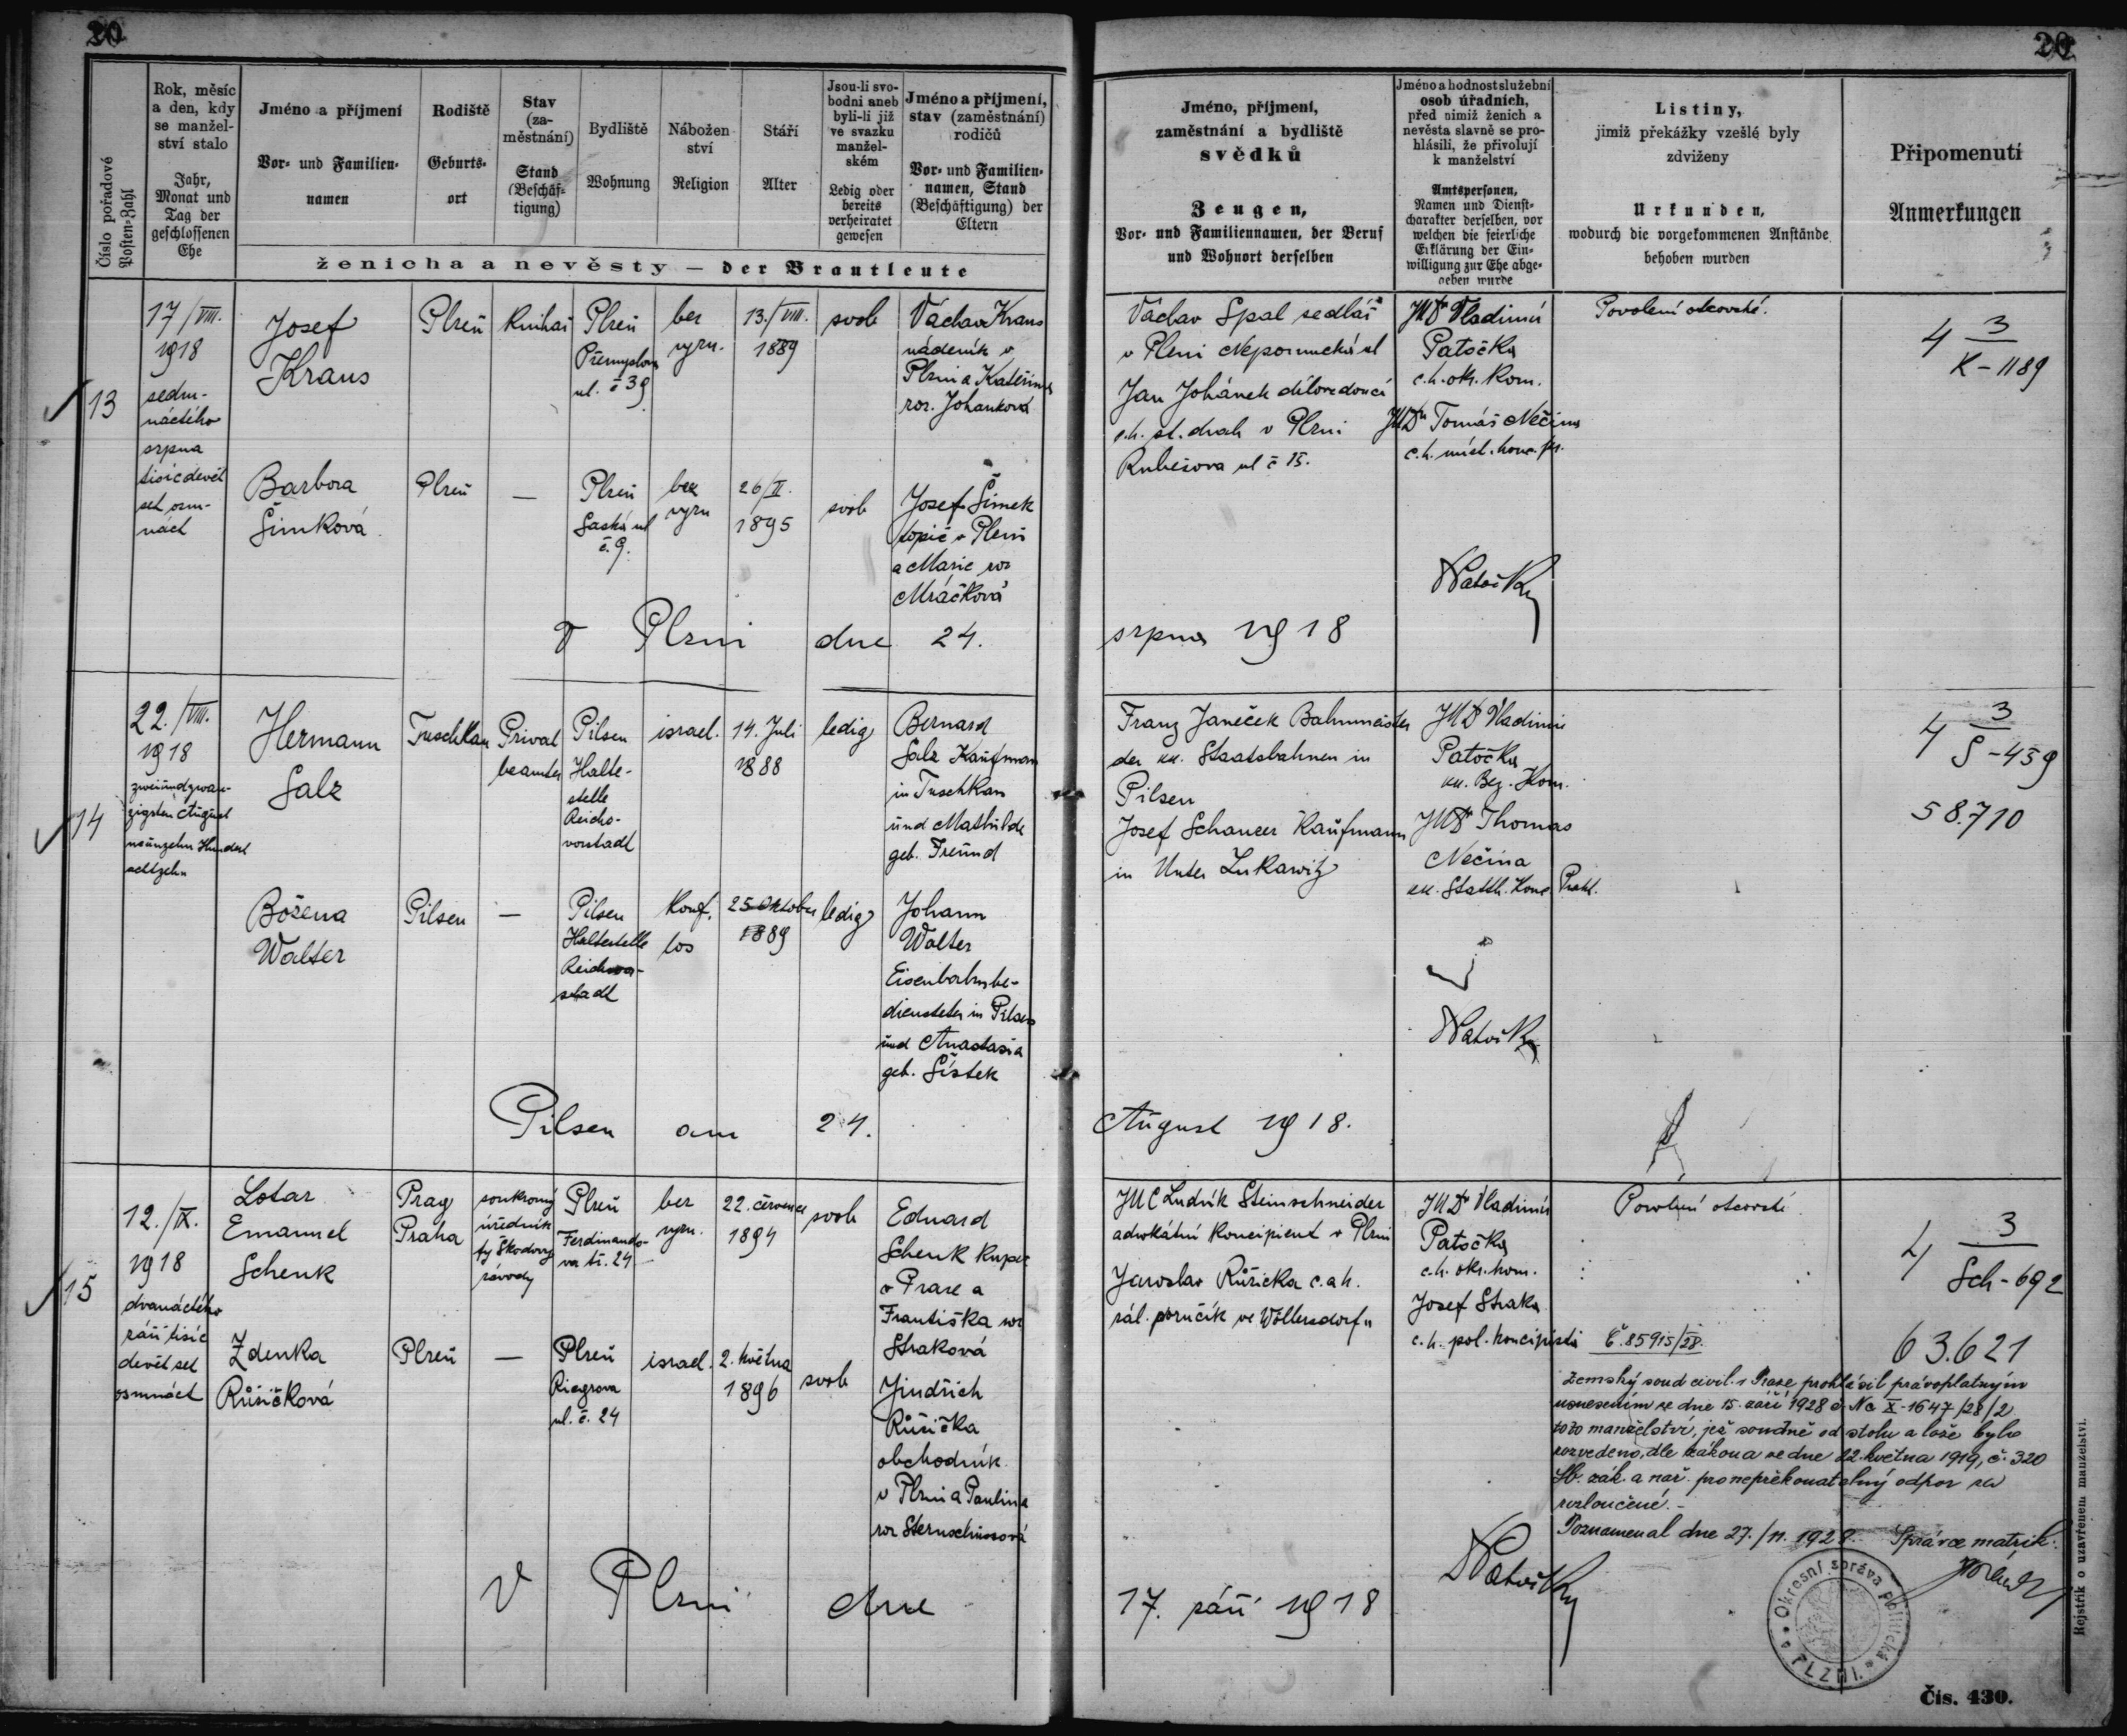 20
20
Číslo pořadové
Posten-Zahl
Rok, měsíc
a den, kdy
se manžel-
ství stalo
Jahr,
Monat und
Tag der
geschlossenen
Ehe
Jméno a příjmení
Vor- und Familien-
namen
Rodiště
Geburts-
ort
Stav
(za-
městnání)
Stand
(Beschäf-
tigung)
Bydliště
Wohnung
Nábožen
ství
Religion
Stáří
Alter
Jsou-li svo-
bodni aneb
byli-li již
ve svazku
manžel-
ském
Ledig oder
bereits
verheiratet
gewesen
Jméno a příjmení,
stav (zaměstnání)
rodičů
Vor- und Familien-
namen, Stand
(Beschäftigung) der
Eltern
ženicha a nevěsty — der Brautleute
Jméno, příjmení,
zaměstnání a bydliště
svědků
Zeugen,
Vor- und Familiennamen, der Beruf
und Wohnort derselben
Jméno a hodnost služební
osob úřadních,
před nimiž ženich a
nevěsta slavně se pro-
hlásili, že přivolují
k manželství
Amtspersonen,
Namen und Dienst-
charakter derselben, vor
welchen die feierliche
Erklärung der Ein-
willigung zur Ehe abge-
geben wurde
Listiny,
jimiž překážky vzešlé byly
zdviženy
Urkunden,
wodurch die vorgekommenen Anstände
behoben wurden
Připomenutí
Anmerkungen
13
17/VIII.
1918
sedm-
náctého
srpna
tisícdevět
set osm-
náct
Josef
Kraus
Plzeň
Knihař
Plzeň
Přemyslova
ul. č 39
bez
vyzn.
13./VIII.
1889
svob
Václav Kraus
nádeník v
Plzni a Kateřina
roz. Johanková
Barbora
Šimková
Plzeň
—
Plzeň
Saská ul
č. 9.
bez
vyzn
26/II.
1895
svob
Josef Šimek
topič v Plzni
a Marie roz
Mráčková
Václav Spal sedlář
v Plzni Nepomucká ul
Jan Johánek dílovedoucí
c.k. st. drah v Plzni
Rubešova ul č 15.
JUDr Vladimír
Patočka
c.k. okr. kom.
JUDr Tomáš Nečina
c.k. míst. konc. pr.
Povolení otcovské.
4 3
K-1189
Patočka
V Plzni dne 24.
srpna 1918
14
22./VIII.
1918
zweiundzwan-
zigsten August
neunzehn Hundert
achtzehn
Hermann
Salz
Tuschkau
Privat
beamter
Pilsen
Halte-
stelle
Reichs-
vorstadt
israel.
14. Juli
1888
ledig
Bernard
Salz Kaufmann
in Tuschkau
und Mathilde
geb. Freund
Božena
Walter
Pilsen
—
Pilsen
Haltestelle
Reichsvor-
stadt
Konf.
los
25 Oktober
1889
ledig
Johann
Walter
Eisenbahnbe-
diensteter in Pilsen
und Anastasia
geb. Šístek
Franz Janeček Bahnmeister
der kk. Staatsbahnen in
Pilsen
Josef Schancer Kaufmann
in Unter Lukawitz
JUDr Vladimir
Patočka
kk. Bez. Kom.
JUDr Thomas
Nečina
kk. Statth. Konc Prakt.
4 3
S-459
58.710
Patočka
Pilsen am 24.
August 1918.
15
12./IX.
1918
dvanáctého
září tisíc
devět set
osmnáct
Lotar
Emanuel
Schenk
Prag
Praha
soukromý
úředník
fy Škodovy
závody
Plzeň
Ferdinando-
va tř. 24
bez
vyzn.
22. července
1894
svob
Eduard
Schenk kupec
v Praze a
Františka roz
Straková
Zdenka
Růžičková
Plzeň
—
Plzeň
Riegrova
ul. č. 24
israel.
2. května
1896
svob
Jindřich
Růžička
obchodník
v Plzni a Paulina
roz Sternschussová
JUC Ludvík Steinschneider
advokátní koncipient v Plzni
Jaroslav Růžička c.a k.
zál. poručík ve Wöllersdorfu
JUDr Vladimír
Patočka
c.k. okr. kom.
Josef Straka
c.k. pol. koncipista
Povolení otcovské.
4 3
Sch-692
63.621
Č. 85915/28.
Zemský soud civil. v Praze prohlásil právoplatným
usnesením ze dne 15. září 1928 č. Nc X-1647/28/2
toto manželství, jež soudně od stolu a lože bylo
rozvedeno, dle zákona ze dne 22. května 1919, č. 320
Sb. zák. a nař. pro nepřekonatelný odpor za
rozloučené.-
Poznamenal dne 27./11. 1928. Správce matrik:
Patočka
V Plzni dne
17. září 1918
Okresní správa politická
v PLZNI.
Rejstřík o uzavřeném manželství.
Čís. 430.